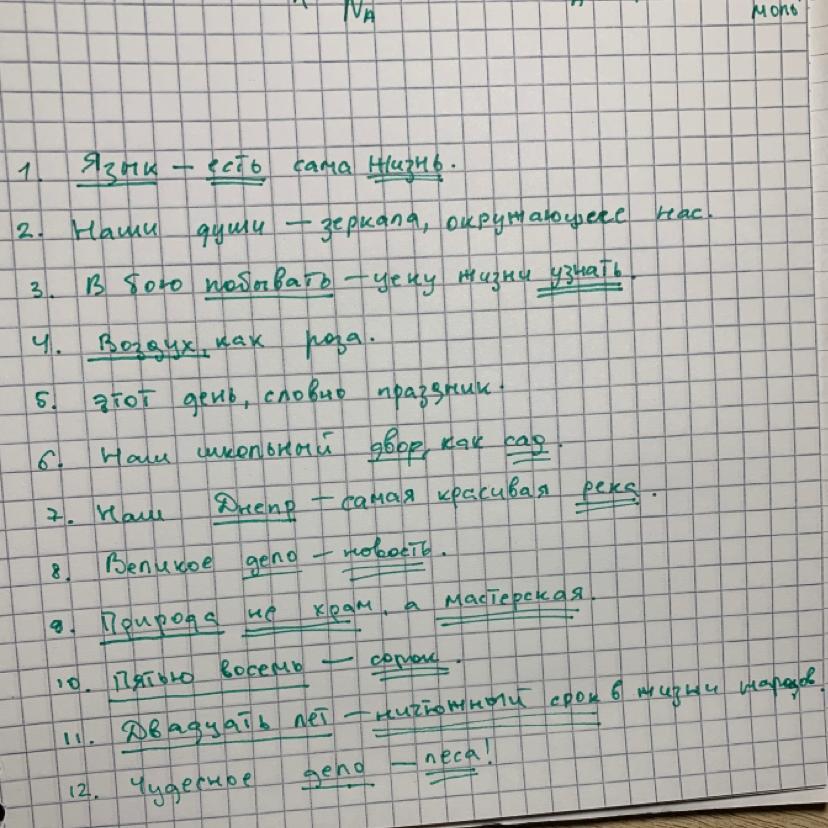 NA
моно
1. Язык – есть сама жизнь.
2. Наши души – зеркала, окружающее нас.
3. В бою побывать – цену жизни узнать.
4. Воздух, как роза.
5. этот день, словно праздник.
6. Наш школьный двор, как сад.
7. Наш Днепр – самая красивая река.
8. Великое дело – новость.
9. Природа не храм, а мастерская.
10. Пятью восемь – сорок.
11. Двадцать лет – ничтожный срок в жизни народов.
12. Чудесное дело – леса!